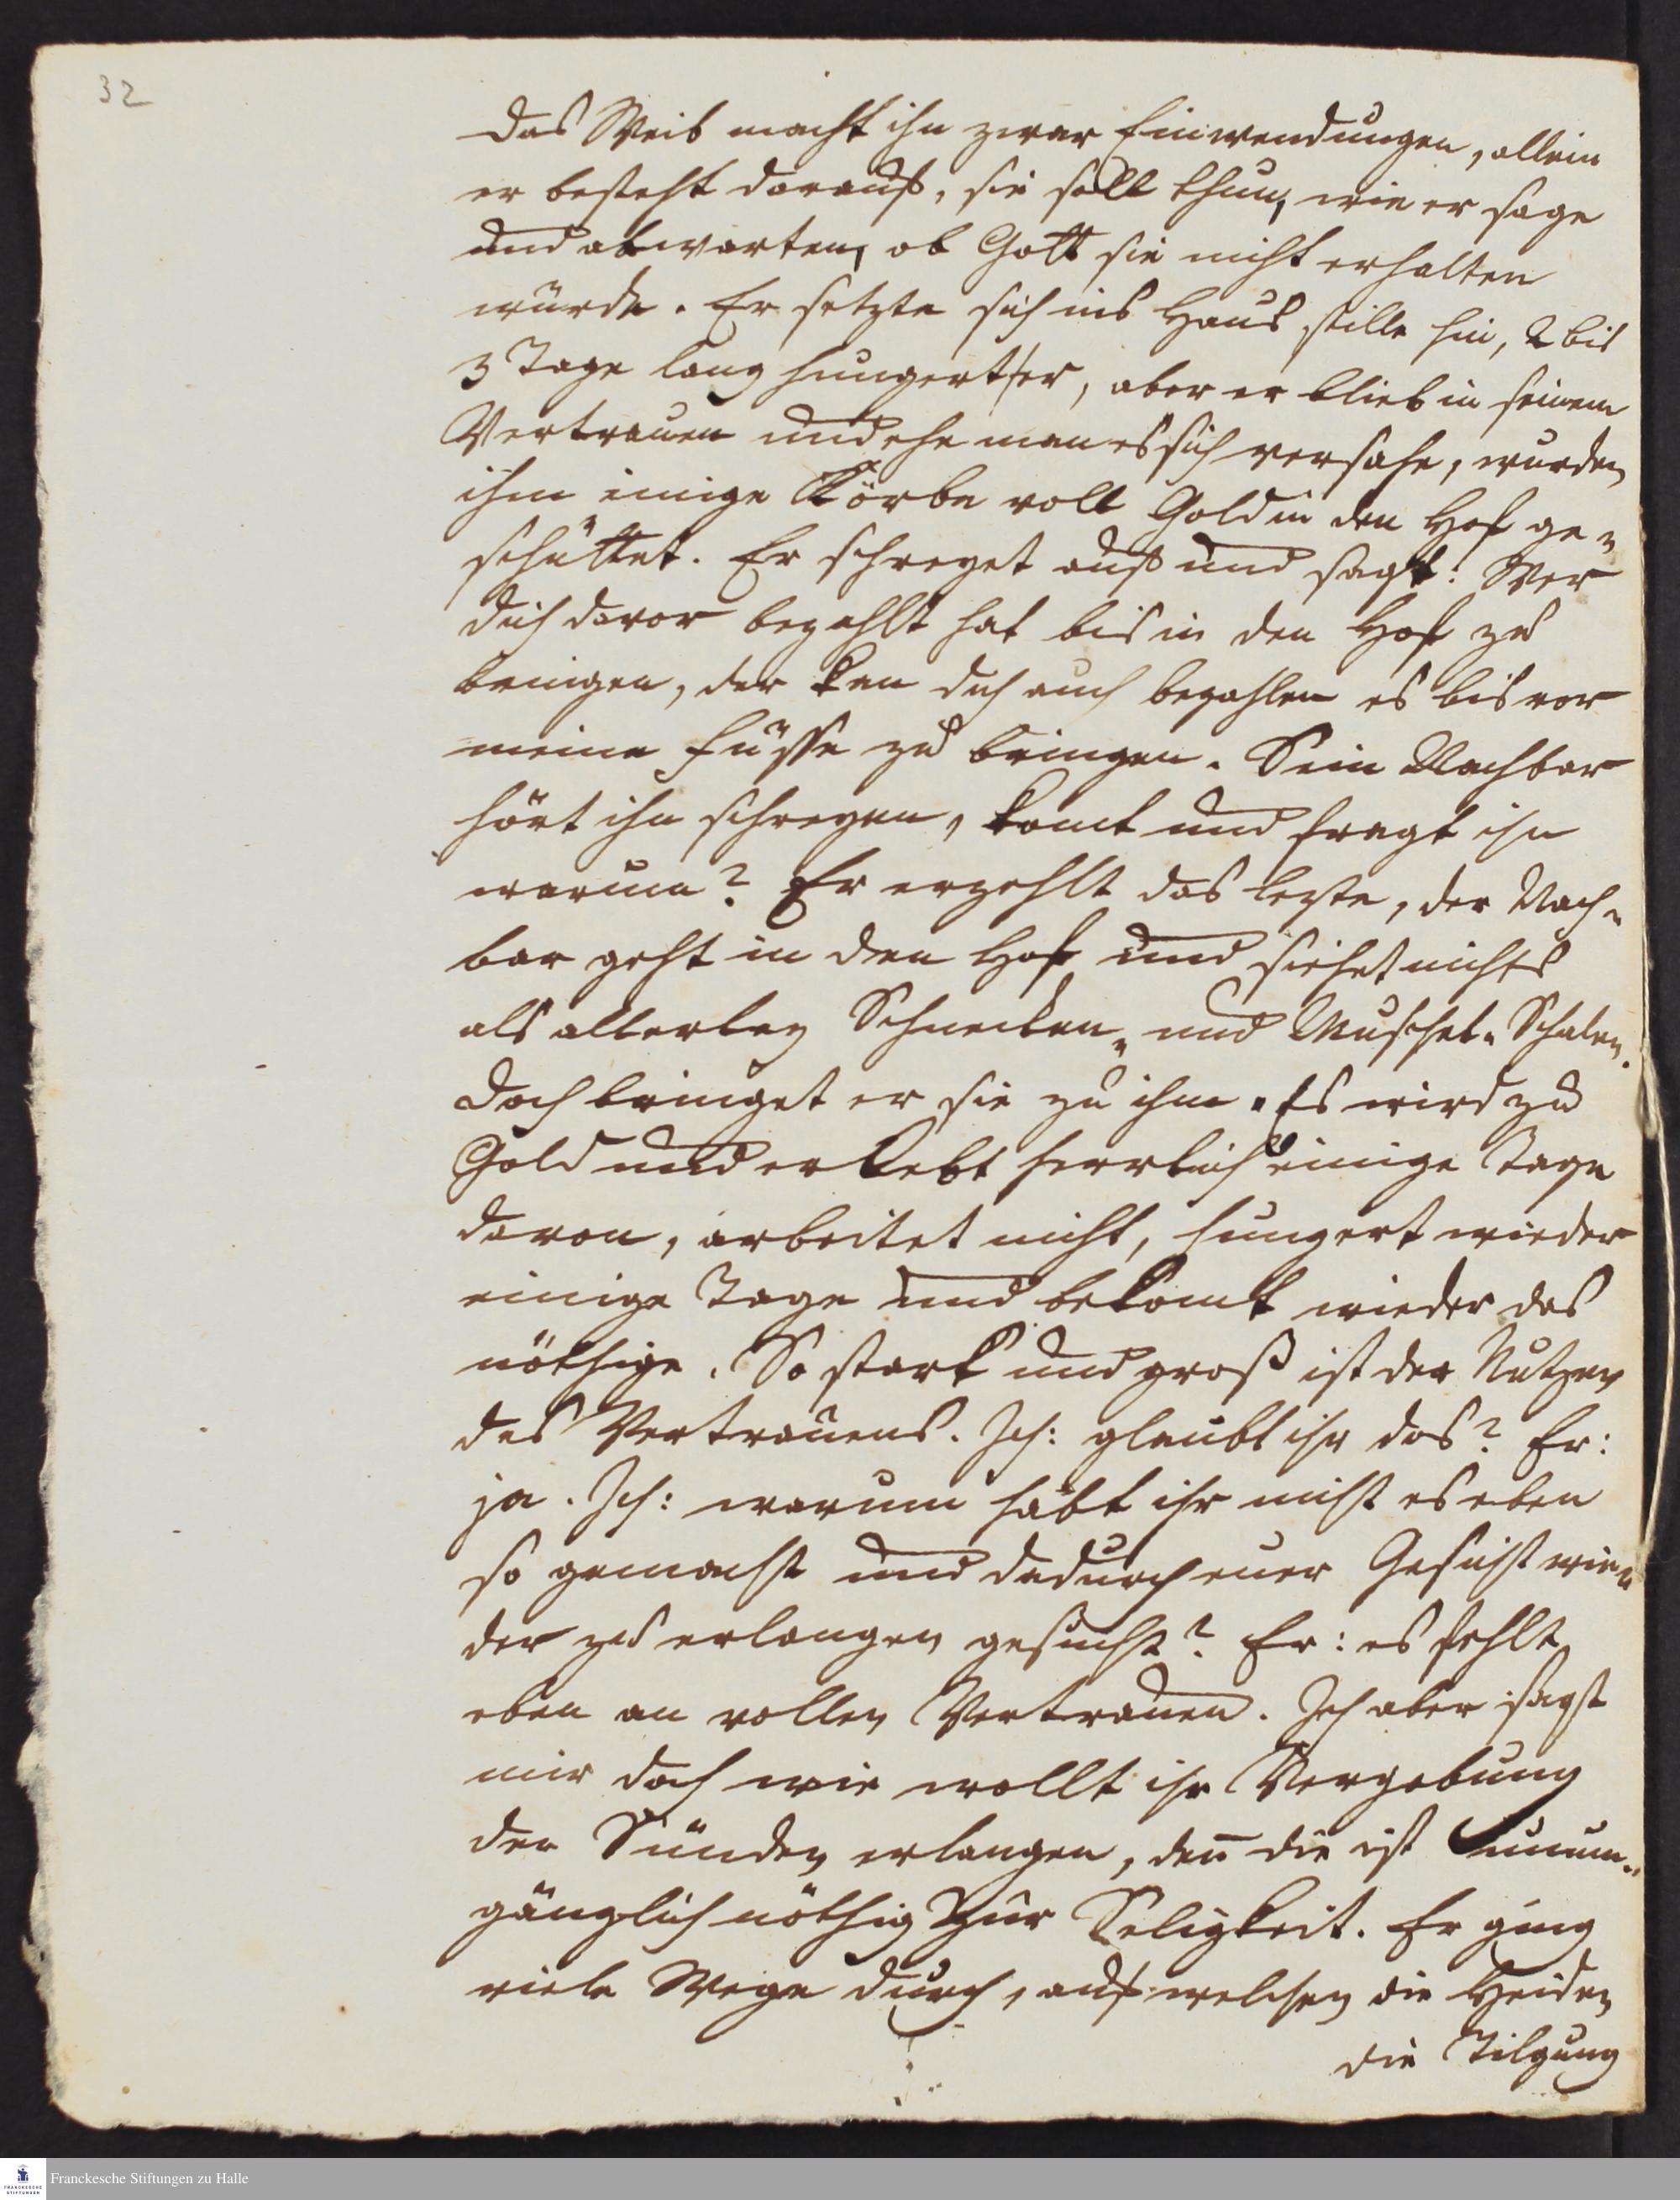 32
Das Weib macht ihn zwar Einwendungen, allein
er besteht darauf, sie soll thun, wie er sage
und abwarten, ob Gott sie nicht erhalten
würde. Er setzte sich ins Haus stille hin, 2 bis
3 Tage lang hungert er, aber er blieb in seinem
Vertrauen und ehe man es sich versahe, wurden
ihm einige Körbe voll Gold in den Hof ge-
schüttet. Er schreyet auf und sagt: Wer
dich davor bezahlt hat bis in den Hof zu
bringen, der kan dich auch bezahlen es bis vor
meine Füsse zu bringen. Sein Nachbar
hört ihn schreyen, komt und fragt ihn
warum? Er erzehlt das lezte, der Nach-
bar geht in den Hof und siehet nichts
als allerley Schnecken- und Muschel-Schalen.
Doch bringet er sie zu ihm. Es wird zu
Gold und er lebt herrlich einige Tage
davon, arbeitet nicht, hungert wieder
einige Tage und bekomt wieder das
nöthige. So stark und groß ist der Nutzen
des Vertrauens. Ich: glaubt ihr das? Er:
ja. Ich: warum habt ihr nicht es eben
so gemacht und dadurch euer Gesicht wie-
der zu erlangen gesucht? Er: es fehlt
eben an vollen Vertrauen. Ich aber sagt
mir doch wie wollt ihr Vergebung
der Sünden erlangen, deñ die ist unum-
gänglich nöthig zur Seligkeit. Er ging
viele Wege durch, auf welchen die Heiden
die Tilgung
Franckesche Stiftungen zu Halle
FRANCKESCHE
STIFTUNGEN